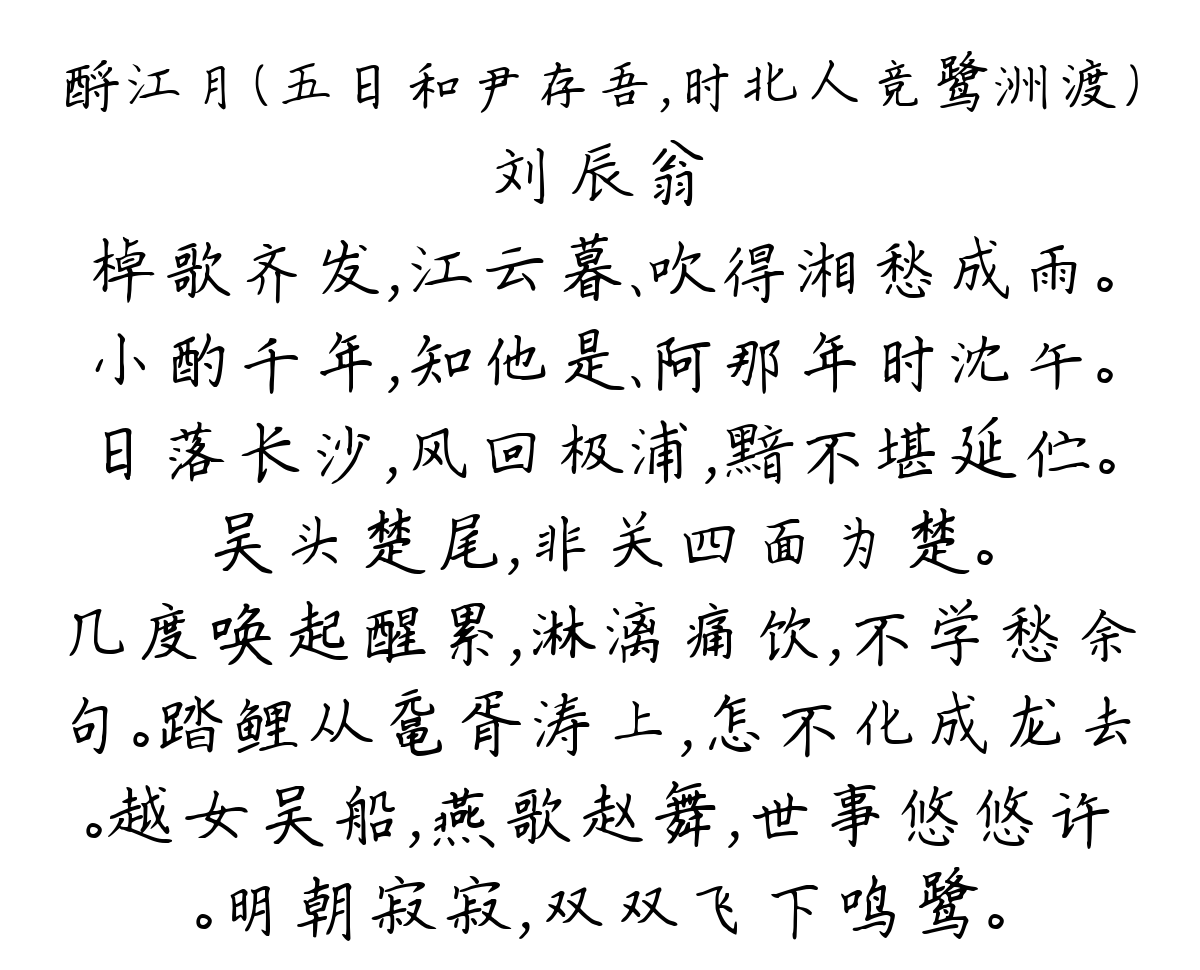 酹江月(五日和尹存吾,时北人竞鹭洲渡)
刘辰翁
棹歌齐发,江云暮、吹得湘愁成雨。
小酌千年,知他是、阿那年时沈午。
日落长沙,风回极浦,黯不堪延伫。
吴头楚尾,非关四面为楚。
几度唤起醒累,淋漓痛饮,不学愁余
句。踏鲤从鼋胥涛上,怎不化成龙去
。越女吴船,燕歌赵舞,世事悠悠许
。明朝寂寂,双双飞下鸣鹭。